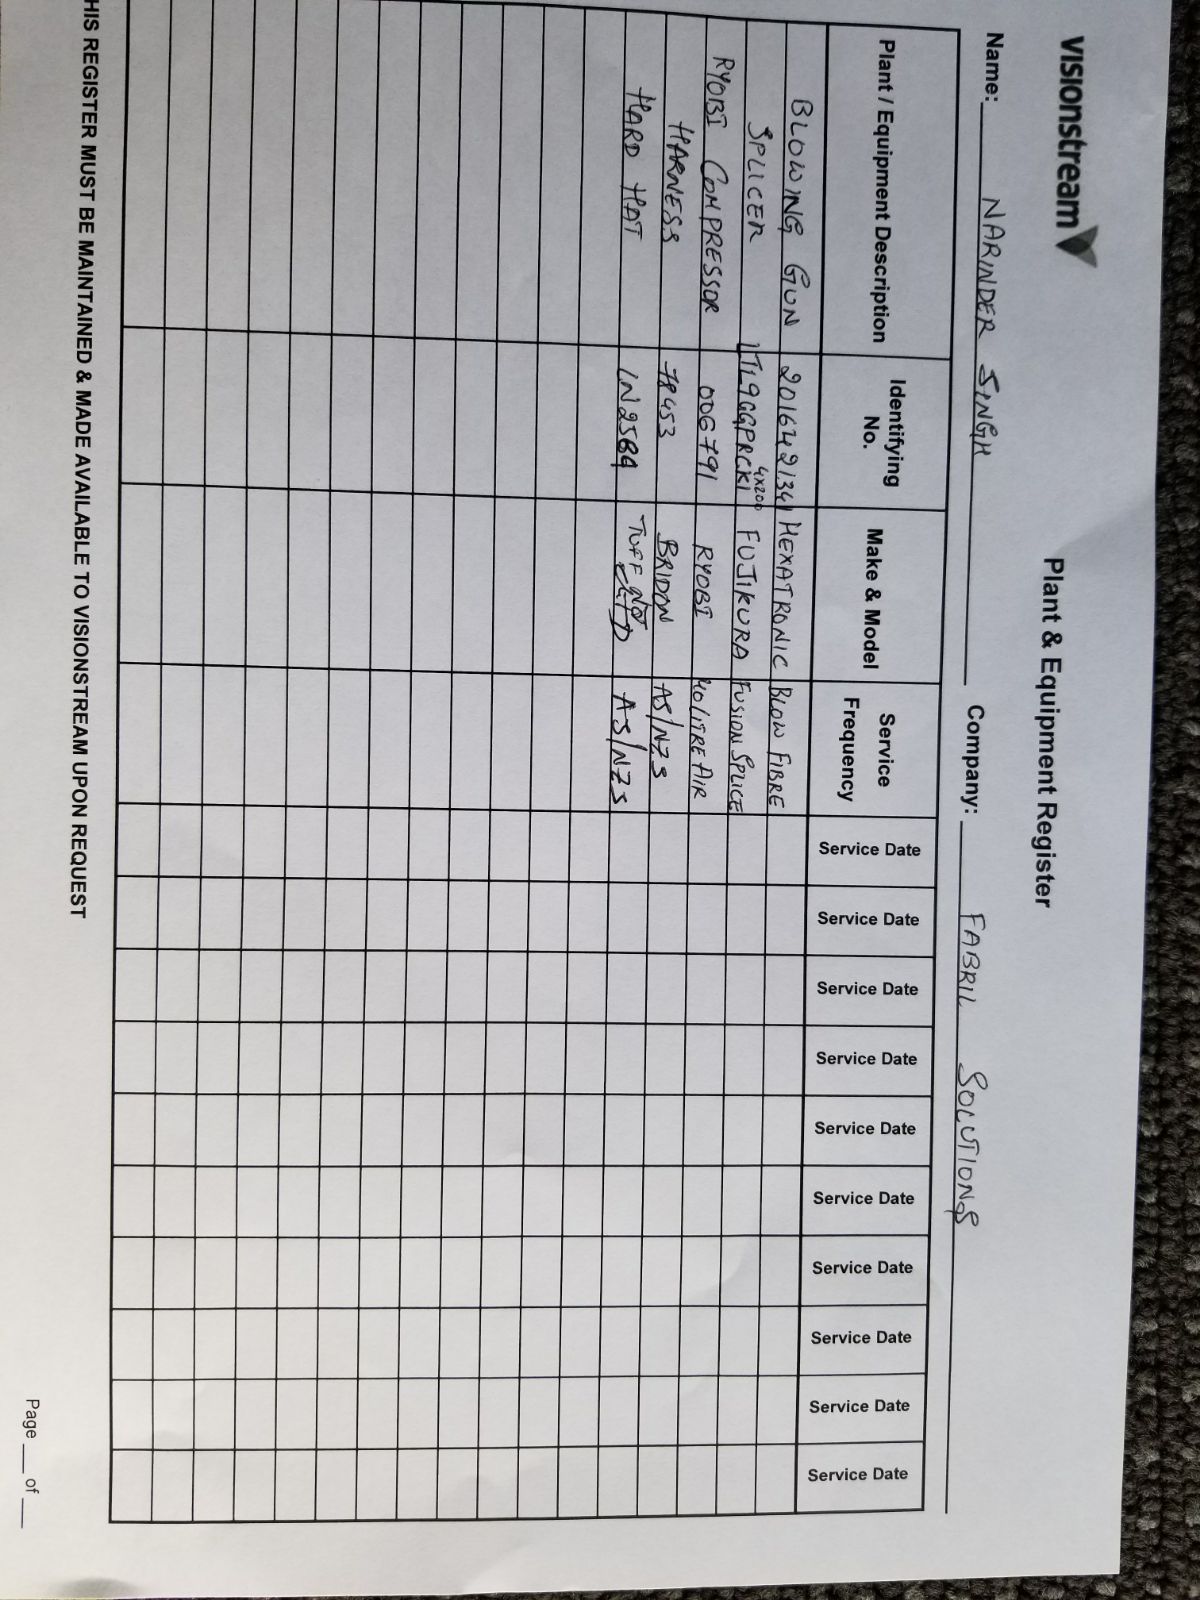 VISIONstream
Plant & Equipment Register
Name: NARINDER SINGH Company: FABRIL SOLUTIONS
Plant / Equipment Description Identifying No. Make & Model Service Frequency Service Date Service Date Service Date Service Date Service Date Service Date Service Date Service Date Service Date Service Date
BLOWING GUN 201642134 HEXATRONIC BLOW FIBRE
SPLICER 4x200 FUJIKURA FUSION SPLICE
RYOBI COMPRESSOR 006791 RYOBI 40 LITRE AIR
HARNESS 78453 BRIDON AS/NZS
HARD HAT LN2584 TUFF AS/NZS
HIS REGISTER MUST BE MAINTAINED & MADE AVAILABLE TO VISIONSTREAM UPON REQUEST
Page ___ of ___